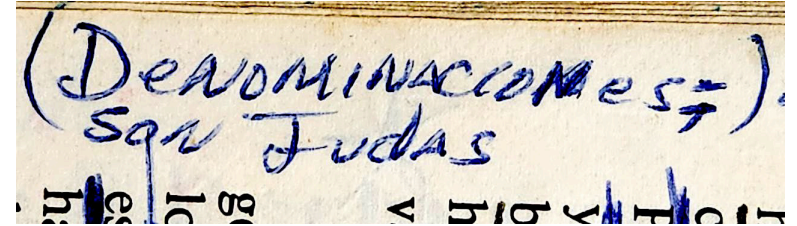 (DeNOMiNACCiONes=).
San Judas